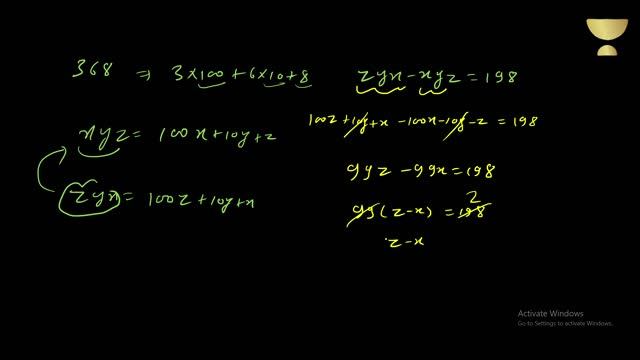 368 ⇒ 3×100+6×10+8
xyz = 100x+10y+z
zyx = 100z+10y+x
zyx-xyz = 198
100z+10y+x -100x-10y-z = 198
99z - 99x = 198
99(z-x) = 198 2
z-x
Activate Windows
Go to Settings to activate Windows.